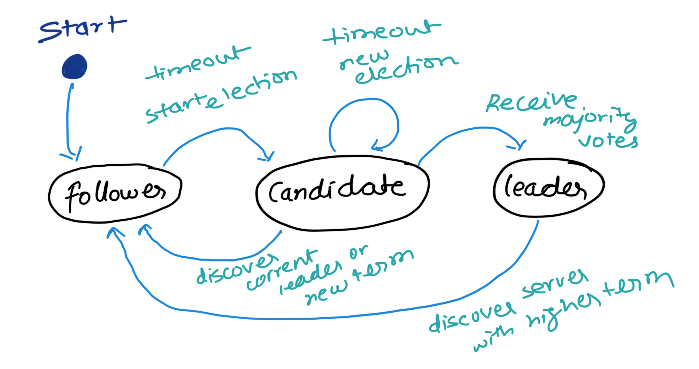 Start
timeout
start election
timeout
new
election
Receive
majority
votes
follower
candidate
leader
discover
current
leader or
new term
discover server
with higher term